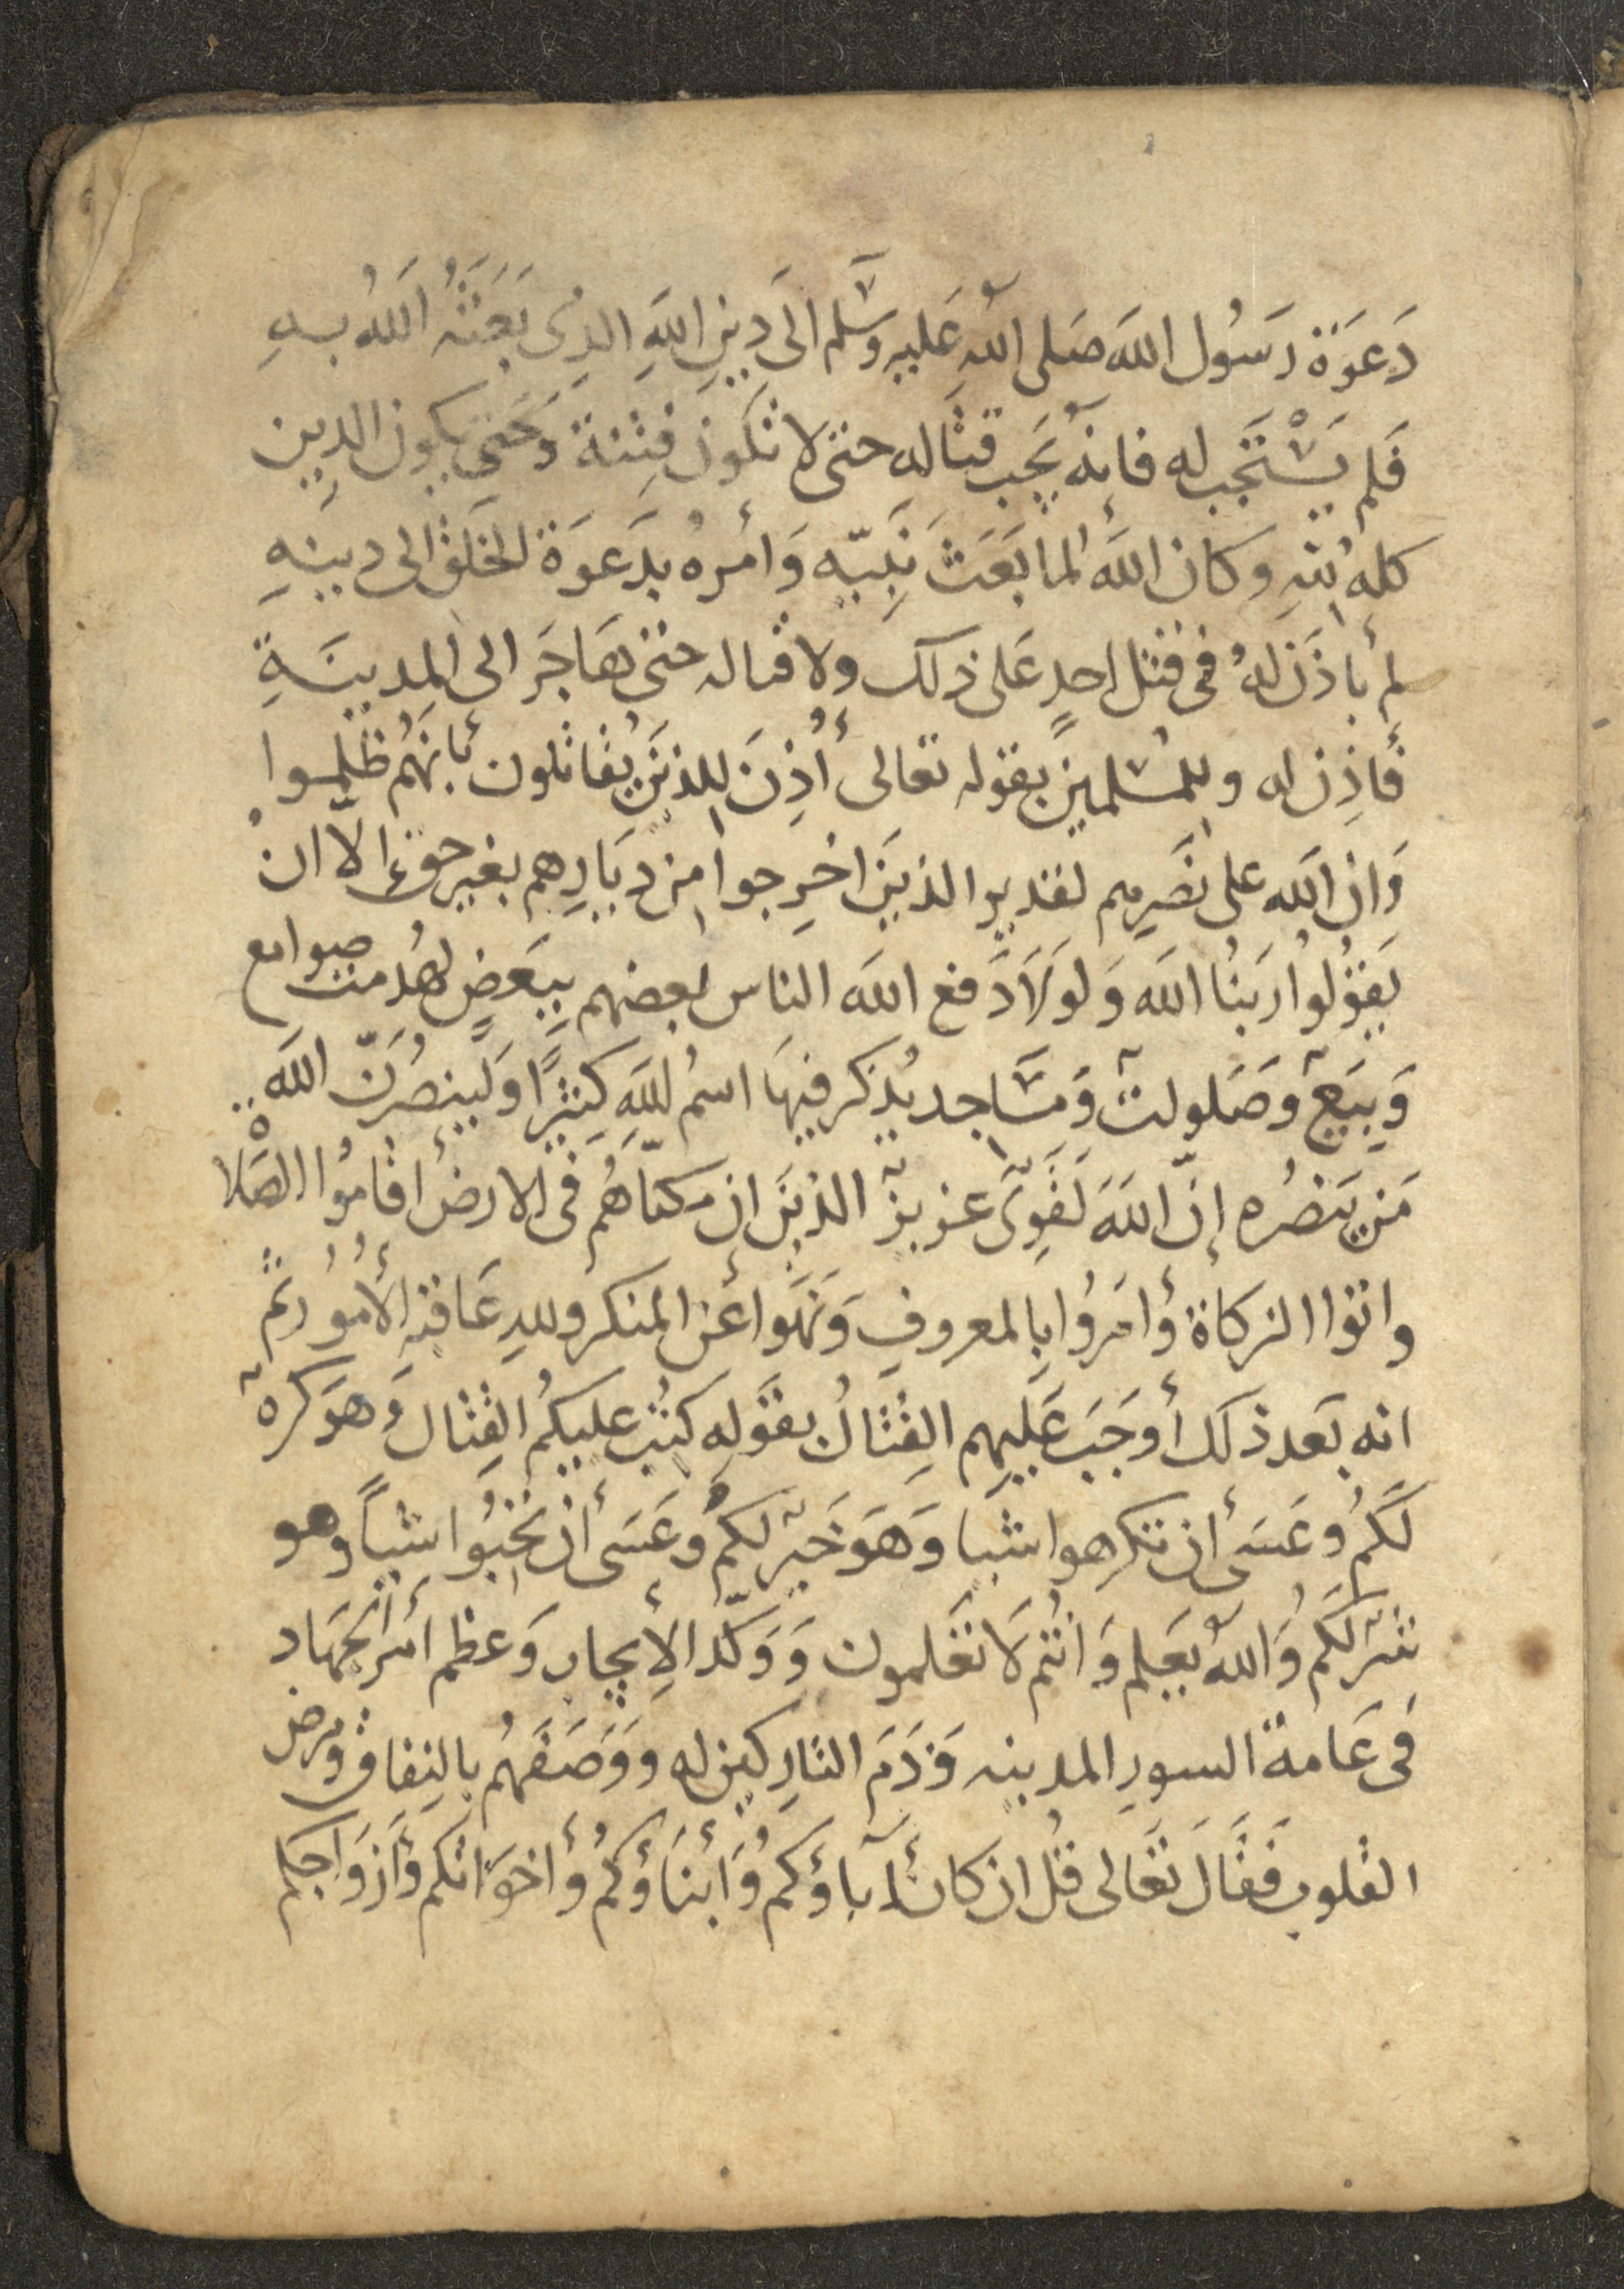 دَعوَة رَسُول اللهَ صَلى اللهِ عَليهِ وسَّلم الىَ دِينِ اللهِ الذِى بَعَثَهُ اللهُ بهِ
فَلم يَسْتَجب له فانهُ يَجَب قتاله حتى لا تكون فِتنة وَحَتى يكون الدِين
كله لله وكان اللهُ لما بَعَثَ نَبِيّه وَأمرهُ بدَعوَة الخَلق الى دينهِ
لم يأذَن لهُ فى قتل احدٍ عَلى ذلك ولا قتاله حتى هَاجَرَ الى المدينةِ
فأذِن له وللمسلمينَ بقوله تعالى أُذِنَ للذينَ يُقاتلون بأنهَم ظُلموا
وَان الله على نصَرِهم لقدير الذينَ اخرِجوا من ديَارِهم بغير حق الا ان
يَقوُلوُا ربَنُا الله وَلولاَ دَفع اللهَ الناس بعضهم ببَعَضٍ لهُدمت صوامع
وَبِيَعٌ وصَلوات وَمسَّاجد يُذكر فيهَا اسمُ اللهِ كثيرًا وَلَينصُرَنّ اللهَ
مَن يَنصُره إنّ اللهَ لَقوِىٌ عزيزٌ الذينَ ان مَكنّاهُم فى الارض أقامُوا الصَلاة
واتوا الزكاة وأمَروُا بالمعروفِ وَنَهَوا عَن المنكر وللهِ عَاقبه الأُمُورُ ثم
انه بَعد ذلك أوجَبَ عَليهم القِتالُ بقوله كتُب عليكمُ القِتال وَهوَ كره
لكمُ وعَسَى أن تكرهوا شيا وَهوَ خَيرٌ لكمُ وعَسَى أن تحُبوُا شيأً وهو
شرٌ لكمُ واللهُ يَعلم وَانتُم لاَ تعَلمون وَوَكّد الإيجاب وَعظم أمر الجهَاد
فى عَامة السور المدينه وَذَمَ التاركين له ووَصَفهَمُ بالنِفاق ومرض
القلوب فقَالَ تعَالى قُل ان كانَ آباؤكم وَأبنَاؤكُم وأخوَانكم وأزوَاجكم